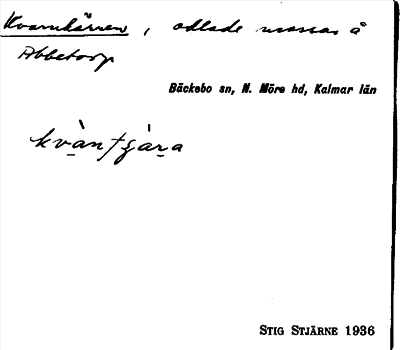 Kvarnkärren, odlade mossar å
Abbetorp
Bäckebo sn, N. Möre hd, Kalmar län
kvàntjæ̀ra
STIG STJÄRNE 1936